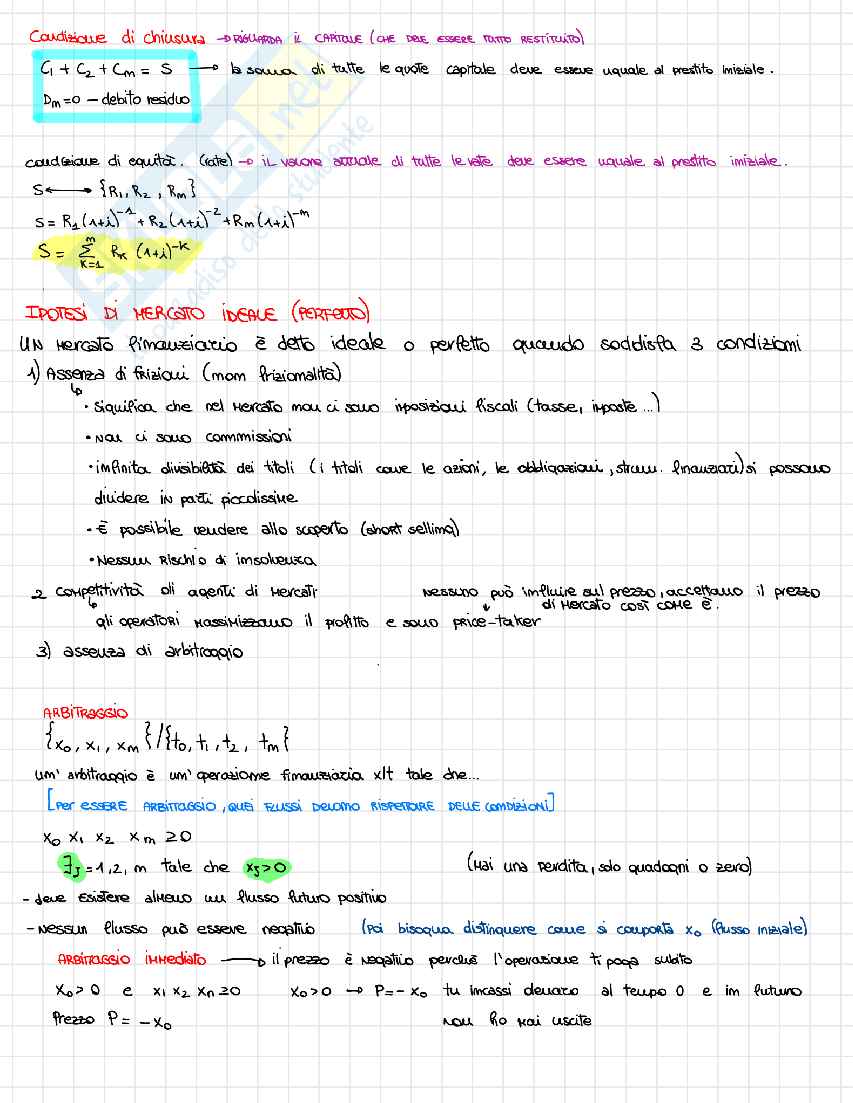 Condizione di chiusura → RIGUARDA IL CAPITALE (CHE DEVE ESSERE TUTTO RESTITUITO)
C₁ + C₂ + Cm = S → la somma di tutte le quote capitale deve essere uguale al prestito iniziale.
Dm=0 – debito residuo
condizione di equità. (rate) → IL VALORE ATTUALE DI TUTTE LE RATE DEVE ESSERE UGUALE AL PRESTITO INIZIALE.
S ⟷ {R₁, R₂, Rm}
S = R₁(1+i)⁻¹ + R₂(1+i)⁻² + Rm(1+i)⁻ᵐ
S = Σ (k=1, m) Rk (1+i)⁻ᵏ
IPOTESI DI MERCATO IDEALE (PERFETTO)
UN Mercato finanziario è detto ideale o perfetto quando soddisfa 3 condizioni
1) Assenza di frizioni (non frizionalità)
↳
• Significa che nel Mercato non ci sono imposizioni fiscali (tasse, imposte ...)
• Non ci sono commissioni
• infinita divisibilità dei titoli (i titoli come le azioni, le obbligazioni, strum. finanziari) si possono
dividere in parti piccolissime
• È possibile vendere allo scoperto (short selling)
• Nessun Rischio di insolvenza
2 competitività gli agenti di Mercati nessuno può influire sul prezzo, accettano il prezzo
↳ di Mercato così come è.
gli operatori Massimizzano il profitto e sono price-taker
3) assenza di arbitraggio
ARBITRAGGIO
{x₀, x₁, xm}/{t₀, t₁, t₂, tm}
un' arbitraggio è un' operazione finanziaria x/t tale che...
[Per ESSERE ARBITRAGGIO, QUEI FLUSSI DEVONO RISPETTARE DELLE CONDIZIONI]
x₀ x₁ x₂ xm ≥0
∃ⱼ =1,2, m tale che xⱼ>0 (Mai una perdita, solo guadagni o zero)
- deve esistere almeno un flusso futuro positivo
- Nessun flusso può essere negativo (Poi bisogna distinguere come si comporta x₀ (flusso iniziale)
ARBITRAGGIO IMMEDIATO → il prezzo è Negativo perché l'operazione ti paga subito
x₀>0 e x₁ x₂ xn ≥0 x₀>0 → P=-x₀ tu incassi denaro al tempo 0 e in futuro
Prezzo P = -x₀ non ho Mai uscite